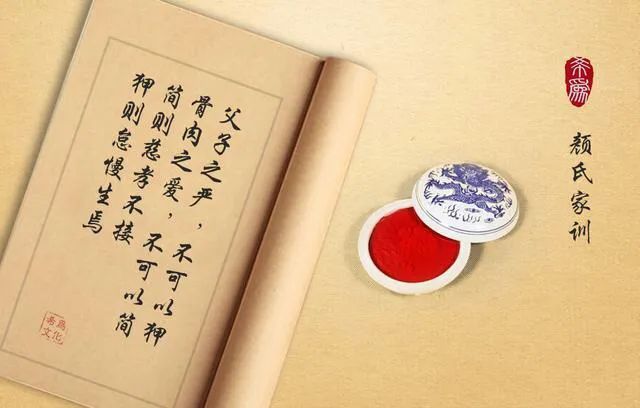 父子之严，不可以狎
骨肉之爱，不可以简
简则慈孝不接
狎则怠慢生焉
希爲
文化
希爲
颜氏家训